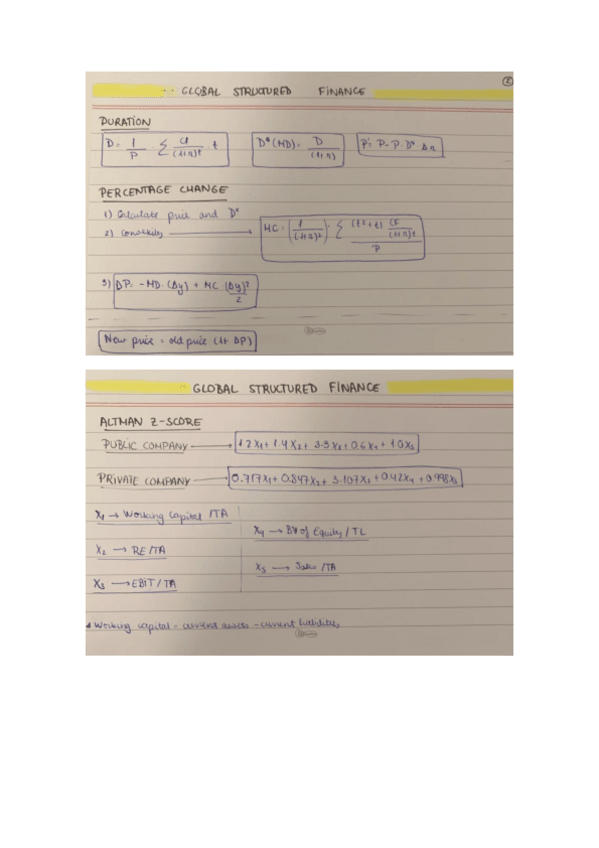 GLOBAL STRUCTURED FINANCE
DURATION
D = 1/P · Σ CF/(1+r)^t · t    D* (MD) = D/(1+r)    P' = P - P · D* Δr
PERCENTAGE CHANGE
1) Calculate price and D*
2) Convexity → MC = (1/(1+r)²) · Σ (t²+t) CF/(1+r)^t / P
3) ΔP = -MD · (Δy) + MC (Δy)²/2
New price = old price (1+ ΔP)
GLOBAL STRUCTURED FINANCE
ALTMAN Z-SCORE
PUBLIC COMPANY → 1.2X1 + 1.4X2 + 3.3X3 + 0.6X4 + 1.0X5
PRIVATE COMPANY → 0.717X1 + 0.847X2 + 3.107X3 + 0.42X4 + 0.998X5
X1 → Working Capital /TA
X4 → BV of Equity / TL
X2 → RE/TA
X5 → Sales /TA
X3 → EBIT/TA
Working capital = current assets - current liabilities